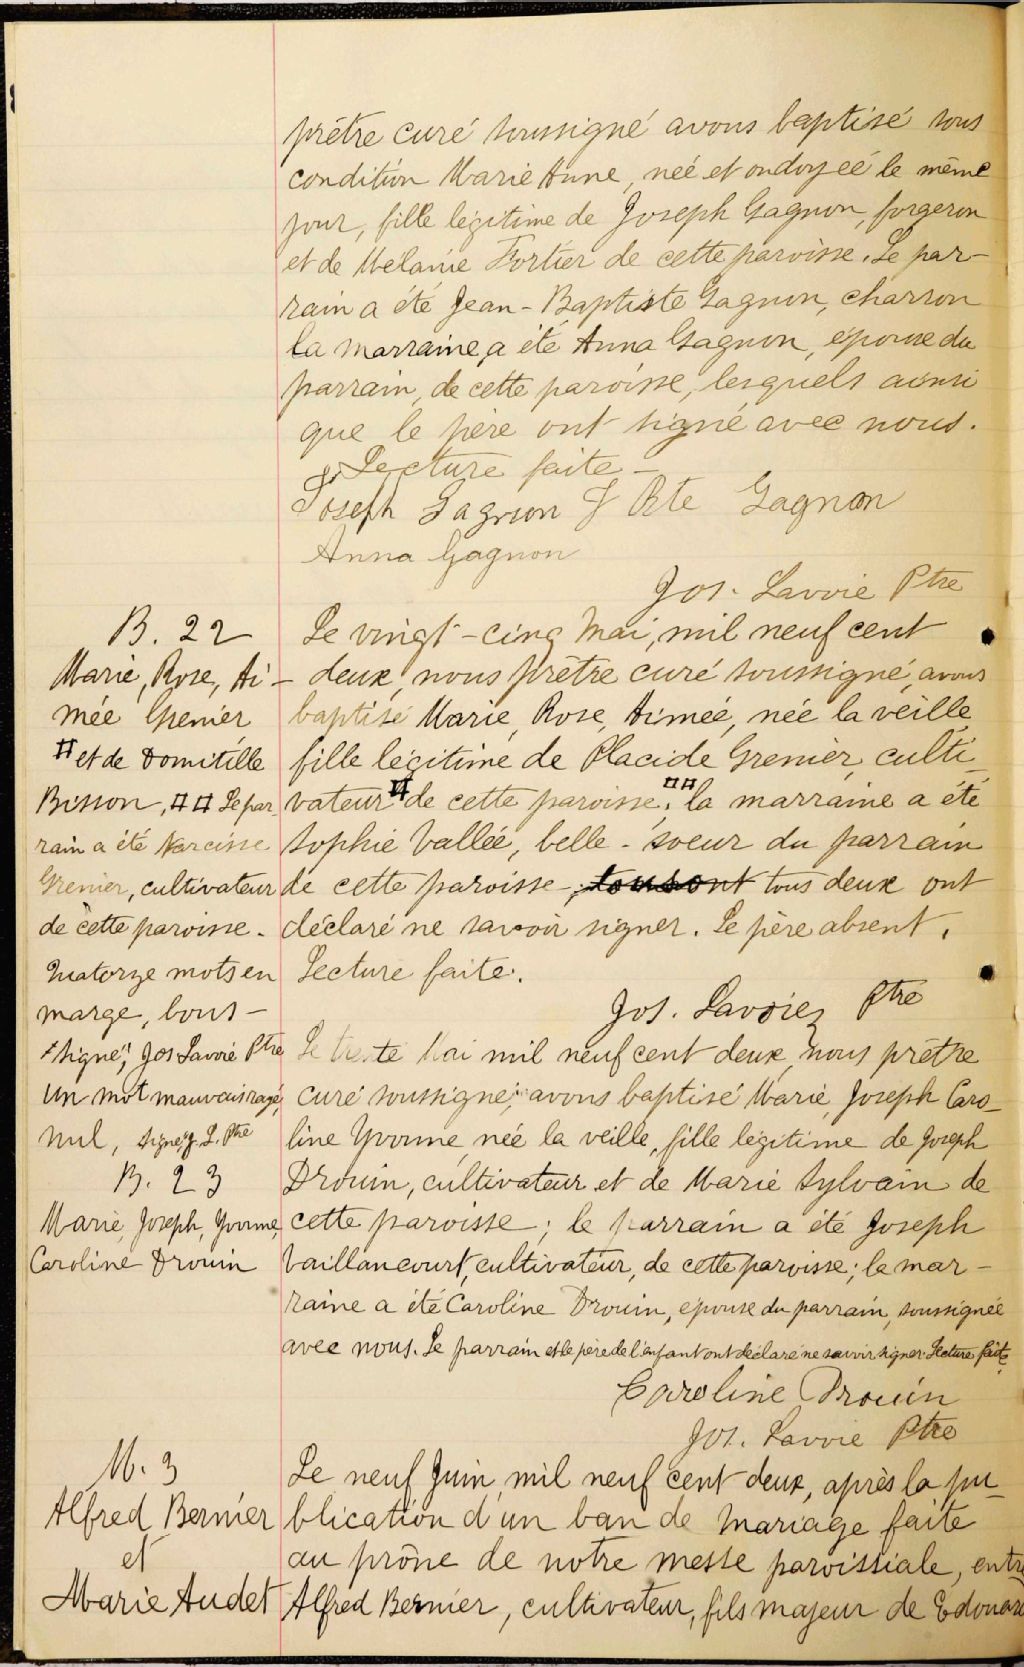 prêtre curé soussigné avons baptisé sous
condition Marie Anne, née et ondoyée le même
jour, fille légitime de Joseph Gagnon, forgeron
et de Melanie Fortier de cette paroisse. Le par-
rain a été Jean-Baptiste Gagnon, charron
la marraine a été Anna Gagnon, épouse du
parrain, de cette paroisse, lesquels ainsi
que le père ont signé avec nous.
Lecture faite -
Joseph Gagnon J Bte Gagnon
Anna Gagnon
Jos. Lavoie Ptre
B. 22
Marie, Rose, Ai-
mée Grenier
¤ et de Domitille
Bisson, ¤¤ Le par-
rain a été Narcisse
Grenier, cultivateur
de cette paroisse.
Quatorze mots en
marge, bons -
signé, Jos Lavoie Ptre
Un mot mauvais rayé,
nul, signé, J. L. Ptre
Le vingt-cinq Mai, mil neuf cent
deux, nous prêtre curé soussigné, avons
baptisé Marie, Rose, Aimée, née la veille,
fille légitime de Placide Grenier, culti-
vateur ¤ de cette paroisse, ¤¤ la marraine a été
Sophie Vallée, belle-soeur du parrain
de cette paroisse, tous ont tous deux ont
déclaré ne savoir signer. Le père absent.
Lecture faite.
Jos. Lavoie, Ptre
B. 23
Marie, Joseph, Yvonne,
Caroline Drouin
Le trente Mai mil neuf cent deux, nous prêtre
curé soussigné, avons baptisé Marie, Joseph Caro-
line Yvonne, née la veille, fille légitime de Joseph
Drouin, cultivateur et de Marie Sylvain de
cette paroisse; le parrain a été Joseph
Vaillancourt, cultivateur, de cette paroisse; la mar-
raine a été Caroline Drouin, épouse du parrain, soussignée
avec nous. Le parrain et le père de l'enfant ont déclaré ne savoir signer. Lecture faite.
Caroline Drouin
Jos. Lavoie Ptre
M. 3
Alfred Bernier
et
Marie Audet
Le neuf Juin, mil neuf cent deux, après la pu-
blication d'un ban de mariage faite
au prône de notre messe paroissiale, entre
Alfred Bernier, cultivateur, fils majeur de Edouard